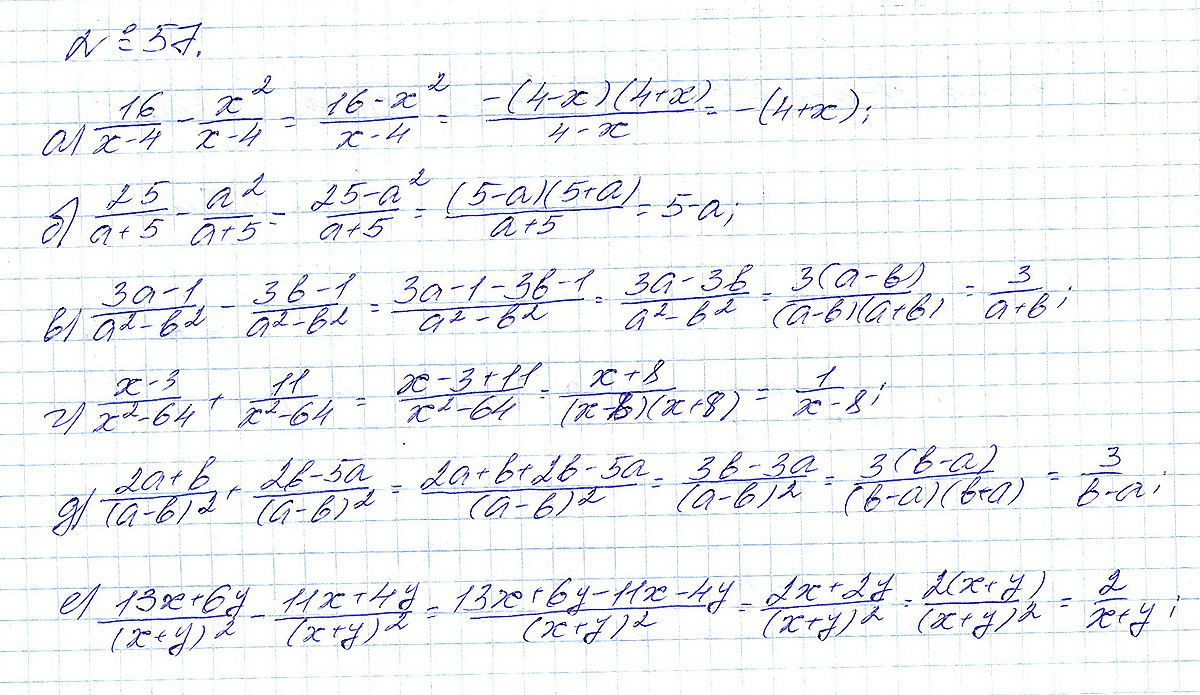 №57.
а) 16/(x-4) - x²/(x-4) = (16-x²)/(x-4) = -(4-x)(4+x)/(4-x) = -(4+x);
б) 25/(a+5) - a²/(a+5) = (25-a²)/(a+5) = (5-a)(5+a)/(a+5) = 5-a;
в) (3a-1)/(a²-b²) - (3b-1)/(a²-b²) = (3a-1-3b-1)/(a²-b²) = (3a-3b)/(a²-b²) = 3(a-b)/((a-b)(a+b)) = 3/(a+b);
г) (x-3)/(x²-64) + 11/(x²-64) = (x-3+11)/(x²-64) = (x+8)/((x-8)(x+8)) = 1/(x-8);
д) (2a+b)/(a-b)² + (2b-5a)/(a-b)² = (2a+b+2b-5a)/(a-b)² = (3b-3a)/(a-b)² = 3(b-a)/((b-a)(b+a)) = 3/(b-a);
е) (13x+6y)/(x+y)² - (11x+4y)/(x+y)² = (13x+6y-11x-4y)/(x+y)² = (2x+2y)/(x+y)² = 2(x+y)/(x+y)² = 2/(x+y);